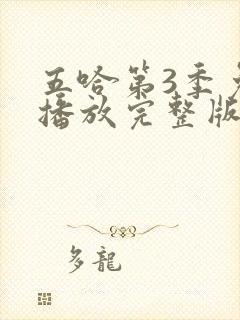 五哈第3季
播放完整版
多龍